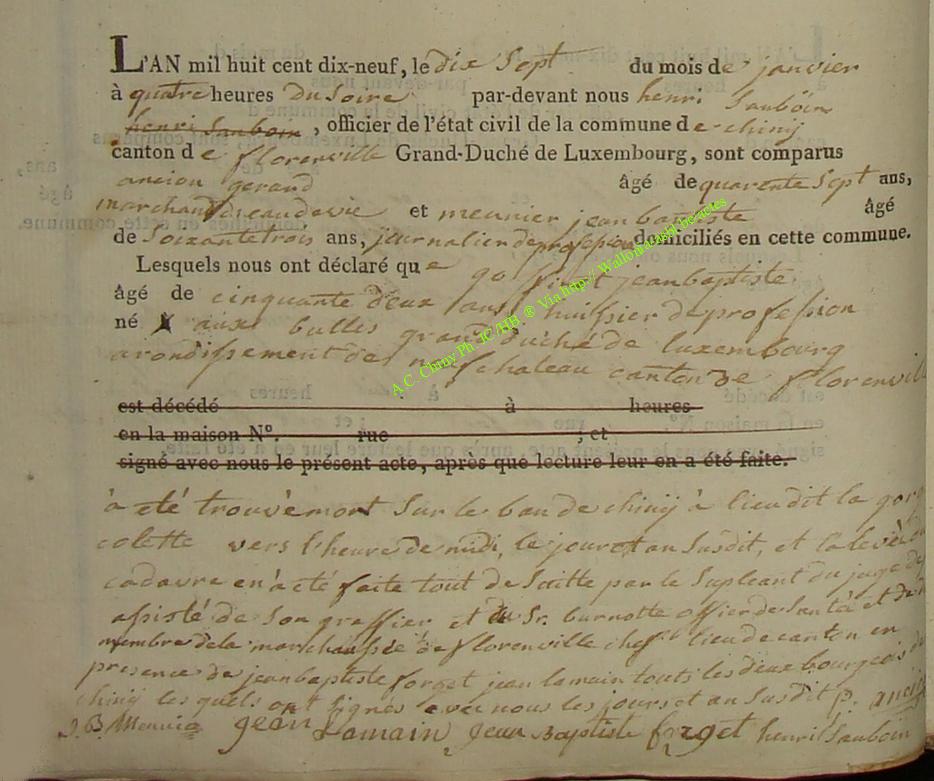 L'AN mil huit cent dix-neuf, le dix Sept du mois de janvier
à quatre heures du Soire par-devant nous henri Sauboin
henri Sauboin, officier de l'état civil de la commune de chinij
canton de florenville Grand-Duché de Luxembourg, sont comparus
ancion gerard âgé de quarente Sept ans,
marchand deaudevie et meunier jean baptiste âgé
de Soixante trois ans, journalier de profession domiciliés en cette commune.
Lesquels nous ont déclaré que jean baptiste
âgé de cinquante deux ans huissier de profession
né aux bulles grand duché de luxembourg
arondissement de neufchateau canton de florenvill
est décédé à heures
en la maison N°. rue , et
signé avec nous le présent acte, après que lecture leur en a été faite.
à eté trouvé mort Sur le ban de chinij à lieu dit la
colette vers l'heure de midi, le jour et an Susdit, et la
cadavre en a eté faite tout de Suitte par le Supleant du juge de
assisté de Son greffier et du Sr. burnotte offier de Santé et de
membre de la marchaussée de florenville chef lieu de canton en
presence de jean baptiste forget jean lamain touts les deux bourgeois de
chinij les quels ont Signés avec nous les jours et an Susdit
J. B. Meunier Jean Lamain Jean Baptiste forget henri Sauboin
A.C. Chiny Ph. JC/HB. ® Via http://Wallonia.asbl.be/actes